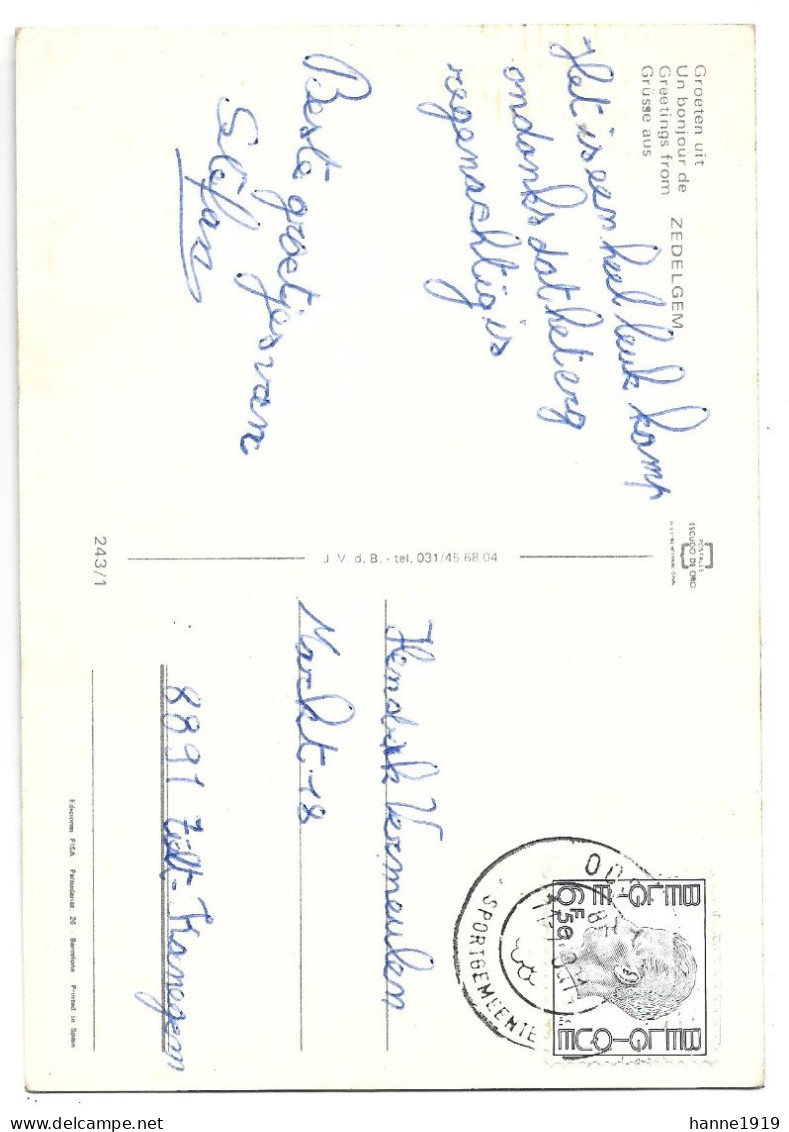 Groeten uit
Un bonjour de
Greetings from
Grüsse aus
ZEDELGEM
Het is een heel leuk kamp
ondanks dat het erg
regenachtig is
Beste groetjes van
Stefan
POSTALES
ESCUDO DE ORO
J. V. d. B. - tel. 031/45.68.04
243/1
BELGIQUE
6F50
BELGIE
SPORTGEMEENTE
Hendrik Vermeulen
Markt 18
8891 Tielt-Kanegem
Ediciones FISA - Palaudarias, 26 - Barcelona Printed in Spain
hanne1919